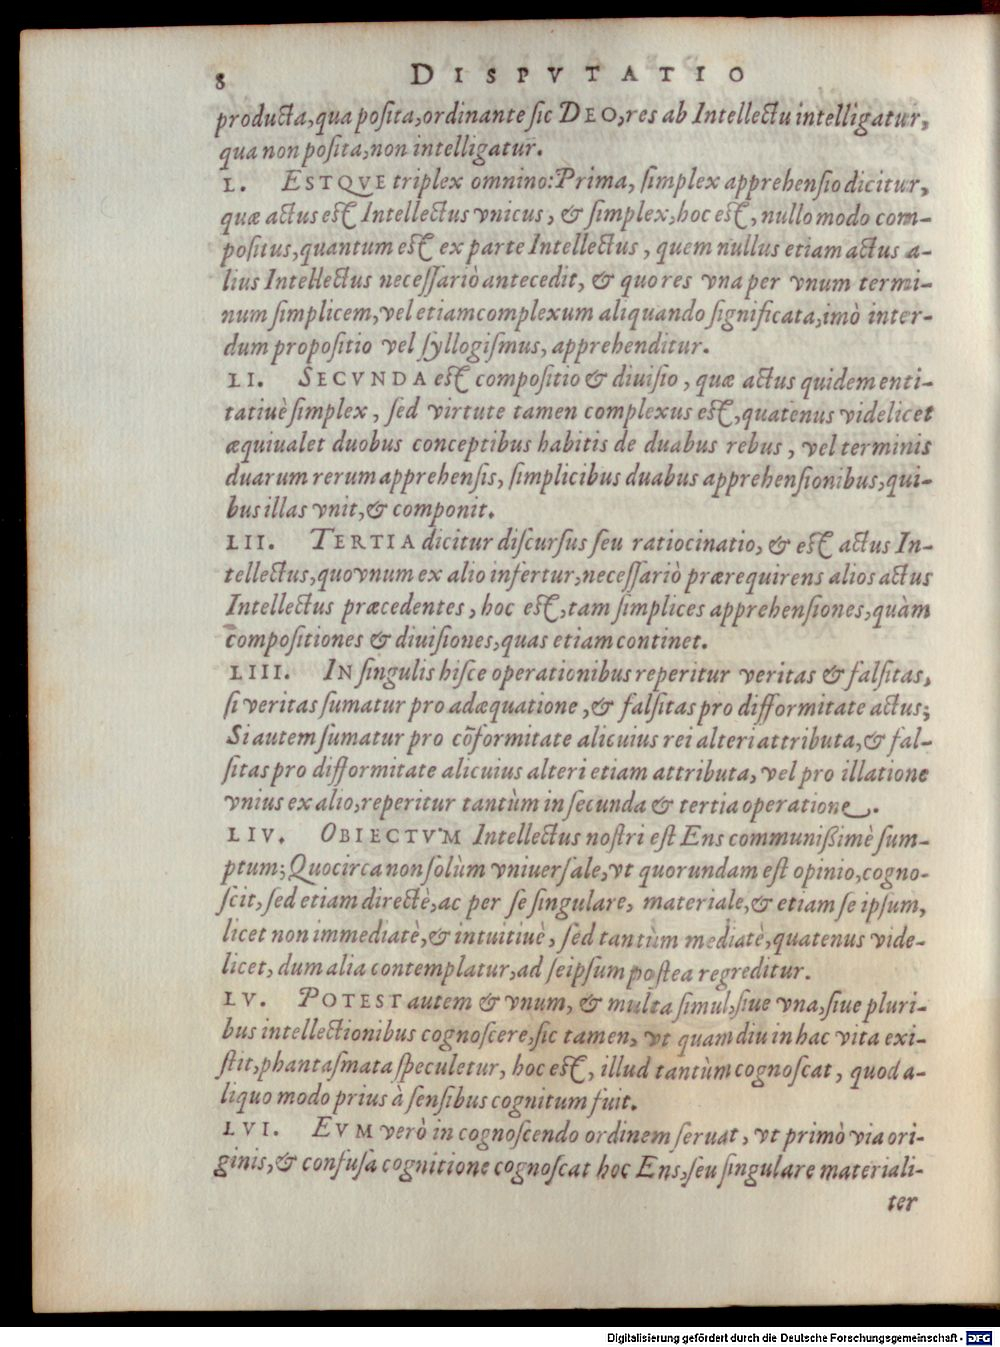 8 DISPVTATIO
producta, qua posita, ordinante sic DEO, res ab Intellectu intelligatur,
qua non posita, non intelligatur.
L. ESTQVE triplex omnino: Prima, simplex apprehensio dicitur,
quæ actus est Intellectus vnicus, & simplex, hoc est, nullo modo com-
positus, quantum est ex parte Intellectus, quem nullus etiam actus a-
lius Intellectus necessariò antecedit, & quo res vna per vnum termi-
num simplicem, vel etiam complexum aliquando significata, imò inter-
dum propositio vel syllogismus, apprehenditur.
LI. SECVNDA est compositio & diuisio, quæ actus quidem enti-
tatiuè simplex, sed virtute tamen complexus est, quatenus videlicet
æquiualet duobus conceptibus habitis de duabus rebus, vel terminis
duarum rerum apprehensis, simplicibus duabus apprehensionibus, qui-
bus illas vnit, & componit.
LII. TERTIA dicitur discursus seu ratiocinatio, & est actus In-
tellectus, quo vnum ex alio infertur, necessariò prærequirens alios actus
Intellectus præcedentes, hoc est, tam simplices apprehensiones, quàm
compositiones & diuisiones, quas etiam continet.
LIII. IN singulis hisce operationibus reperitur veritas & falsitas,
si veritas sumatur pro adæquatione, & falsitas pro difformitate actus;
Si autem sumatur pro cõformitate alicuius rei alteri attributa, & fal-
sitas pro difformitate alicuius alteri etiam attributa, vel pro illatione
vnius ex alio, reperitur tantùm in secunda & tertia operatione.
LIV. OBIECTVM Intellectus nostri est Ens communißimè sum-
ptum; Quocirca non solùm vniuersale, vt quorundam est opinio, cogno-
scit, sed etiam directè, ac per se singulare, materiale, & etiam se ipsum,
licet non immediatè, & intuitiuè, sed tantùm mediatè, quatenus vide-
licet, dum alia contemplatur, ad seipsum postea regreditur.
LV. POTEST autem & vnum, & multa simul, siue vna, siue pluri-
bus intellectionibus cognoscere, sic tamen, vt quam diu in hac vita exi-
stit, phantasmata speculetur, hoc est, illud tantùm cognoscat, quod a-
liquo modo prius à sensibus cognitum fuit.
LVI. EVM verò in cognoscendo ordinem seruat, vt primò via ori-
ginis, & confusa cognitione cognoscat hoc Ens, seu singulare materiali-
ter
Digitalisierung gefördert durch die Deutsche Forschungsgemeinschaft - DFG